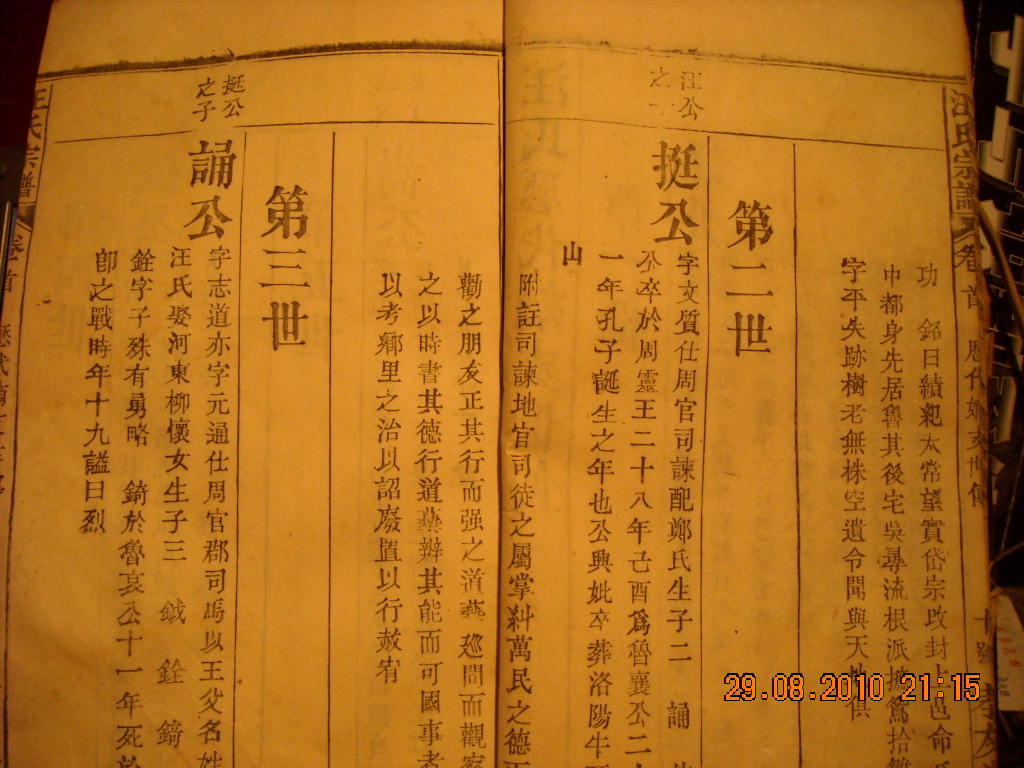 汪氏宗譜 卷首 歷代
功 銘曰績紀太常望實岱宗改封上邑命
中都身先居魯其後宅吳尋流根派
字平失跡樹老無株空遺令聞與天地俱
第二世
汪公
之
挺公
字文質仕周官司諫配鄭氏生子二 誦
公卒於周靈王二十八年己酉為魯襄公二十
一年孔子誕生之年也公與妣卒葬洛陽牛
山
附註司諫地官司徒之屬掌糾萬民之德
勸之朋友正其行而强之道藝廵問而觀察
之以時書其德行道藝辨其能而可國事者
以考鄉里之治以詔廢置以行赦宥
第三世
挺公
之子
誦公
字志道亦字元通仕周官郡司馬以王父名姓
汪氏娶河東柳懷女生子三 鉞 銓 錡
銓字子殊有勇略 錡於魯哀公十一年死於
郎之戰時年十九謚曰烈
汪氏宗譜 卷首
29.08.2010 21:15